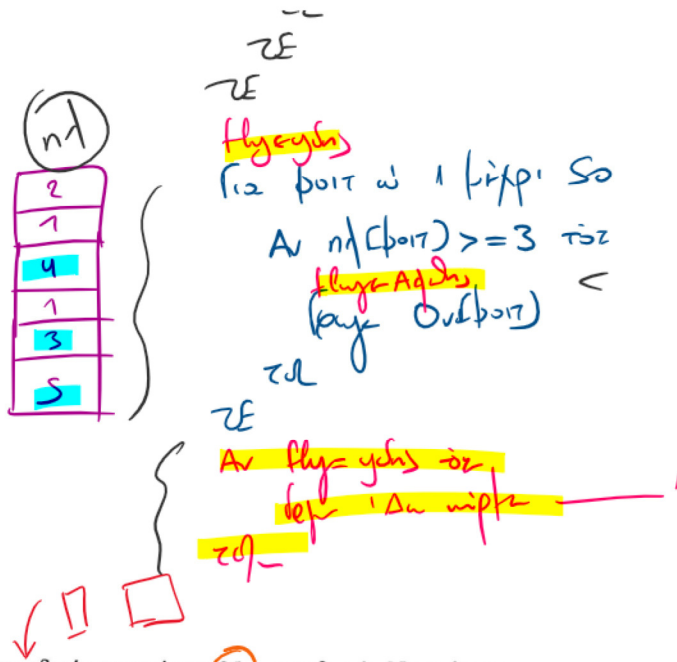 ΤΕ
ΤΕ
πλ
flag ← ψευδής
Για φοιτ από 1 μέχρι 50
Αν πλ[φοιτ] >= 3 τότε
flag ← Αληθής
Γράψε Ον[φοιτ]
ΤΑ
ΤΕ
Αν flag = ψευδής τότε
Γράψε 'Δεν
ΤΑ_
2
1
4
1
3
5